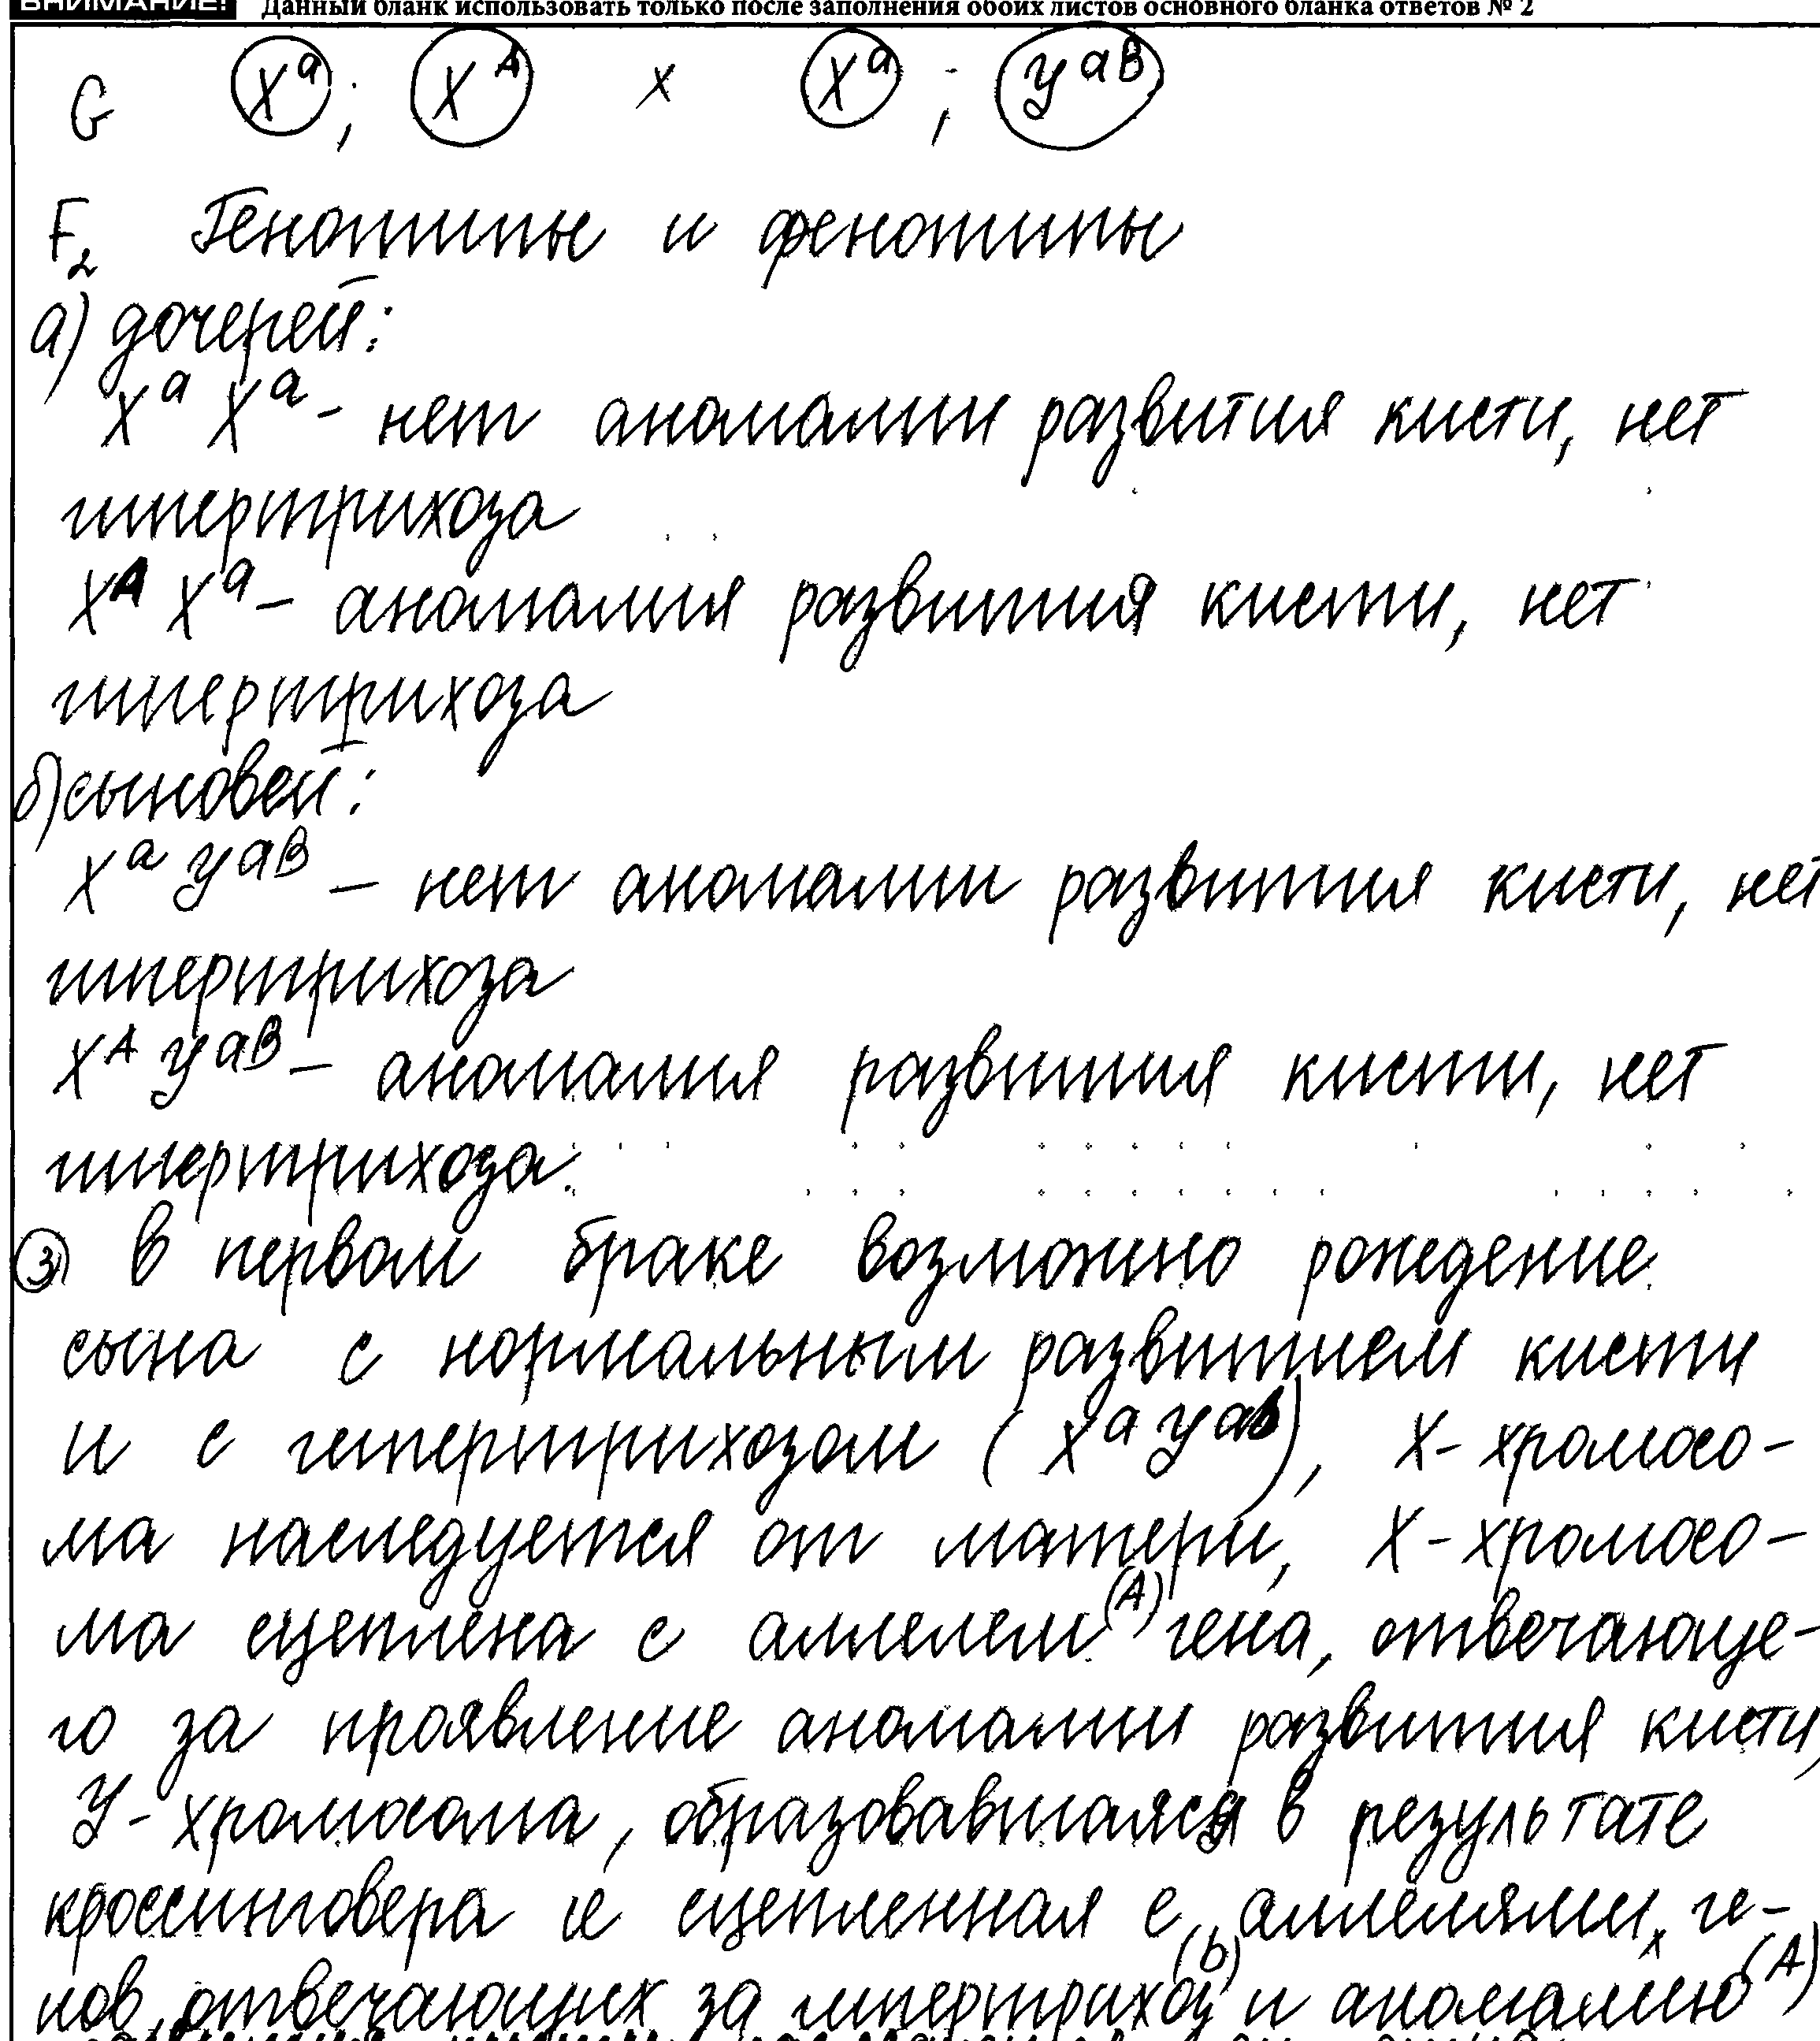 ВНИМАНИЕ! Данный бланк использовать только после заполнения обоих листов основного бланка ответов № 2
G Xᵃ; Xᴬ × Xᵃ ; Yᵃᴮ
F₂ Генотипы и фенотипы
а) дочерей:
Xᵃ Xᵃ - нет аномалии развития кисти, нет
гипертрихоза
Xᴬ Xᵃ – аномалия развития кисти, нет
гипертрихоза
б) сыновей:
Xᵃ Yᵃᴮ – нет аномалии развития кисти, нет
гипертрихоза
Xᴬ Yᵃᴮ – аномалия развития кисти, нет
гипертрихоза.
③ В первом браке возможно рождение
сына с нормальным развитием кисти
и с гипертрихозом ( Xᵃ Yᵃᵇ), X- хромосо-
ма наследуется от матери, X-хромосо-
ма сцеплена с аллелем (А) гена, отвечающе-
го за проявление аномалии развития кисти,
Y- хромосома, образовавшаяся в результате
кроссинговера и сцепленная с аллелями ге-
нов, отвечающих за гипертрихоз (b) и аномалию (А)